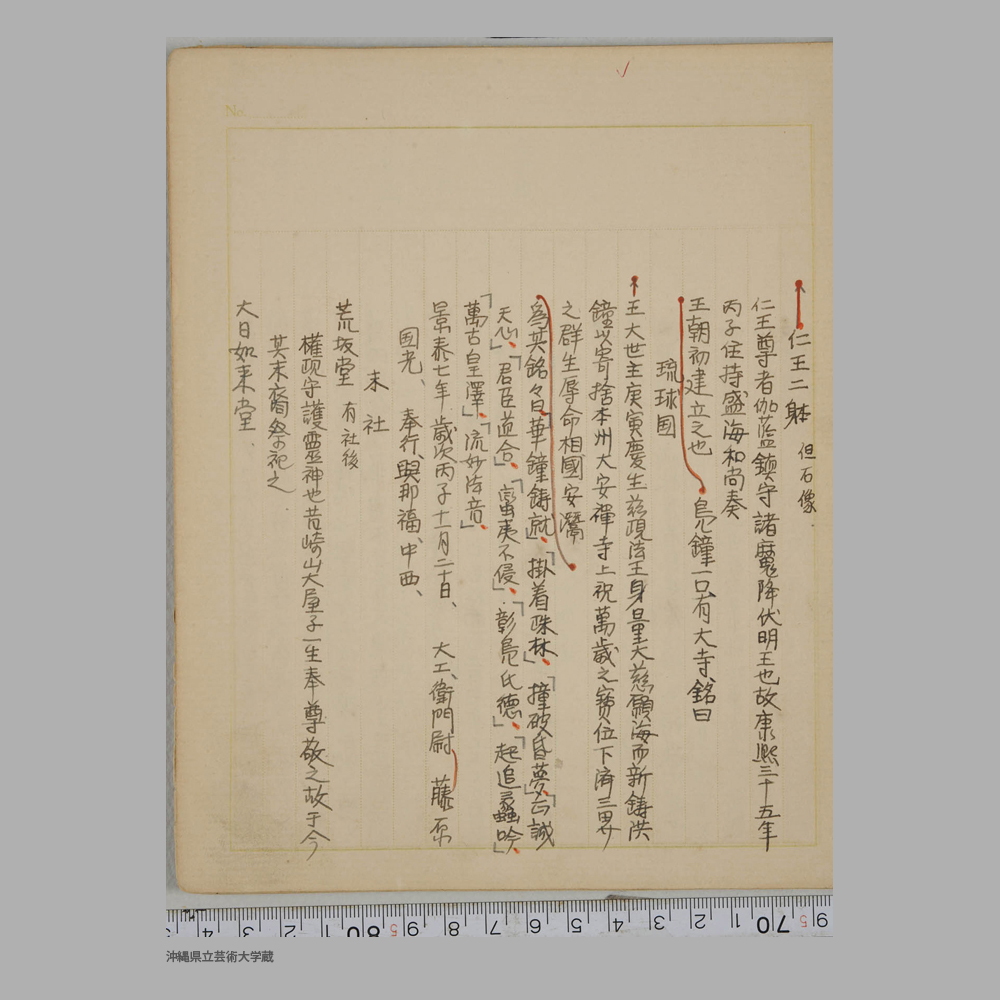 仁王二躰 但石像
仁王尊者伽藍鎮守諸魔降伏明王也故康熙三十五年
丙子住持盛海和尚奏
王朝初建立之也 鳧鐘一口有大寺銘曰
琉球国
王大世主庚寅慶生慈現法王身量大慈願海而新鋳洪
鐘以寄捨本州大安禅寺上祝萬歳之宝位下済三界
之群生辱命相國安潛
為其銘々曰「華鐘鋳就」「掛着珠林」「撞破昏夢」「正誠
天心」「君臣道合」「蛮夷不侵」「彰鳧氏徳」「起追蠡吟」
「萬古皇澤」「流妙法音」
景泰七年歳次丙子十一月二十日、 大工、衛門尉 藤原
国光、 奉行、與那福、中西、
末社
荒坂堂 有社後
権現守護霊神也昔崎山大屋子一生奉尊敬之故于今
其末裔祭祀之
大日如来堂
No.
沖縄県立芸術大学蔵